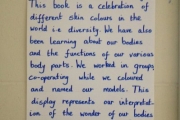 This book is a celebration of
different skin colours in the
world i.e diversity. We have also
been learning about our bodies
and the functions of our various
body parts. We worked in groups
co-operating while we coloured
and named our models. This
display represents our interpretat-
ion of the wonder of our bodies